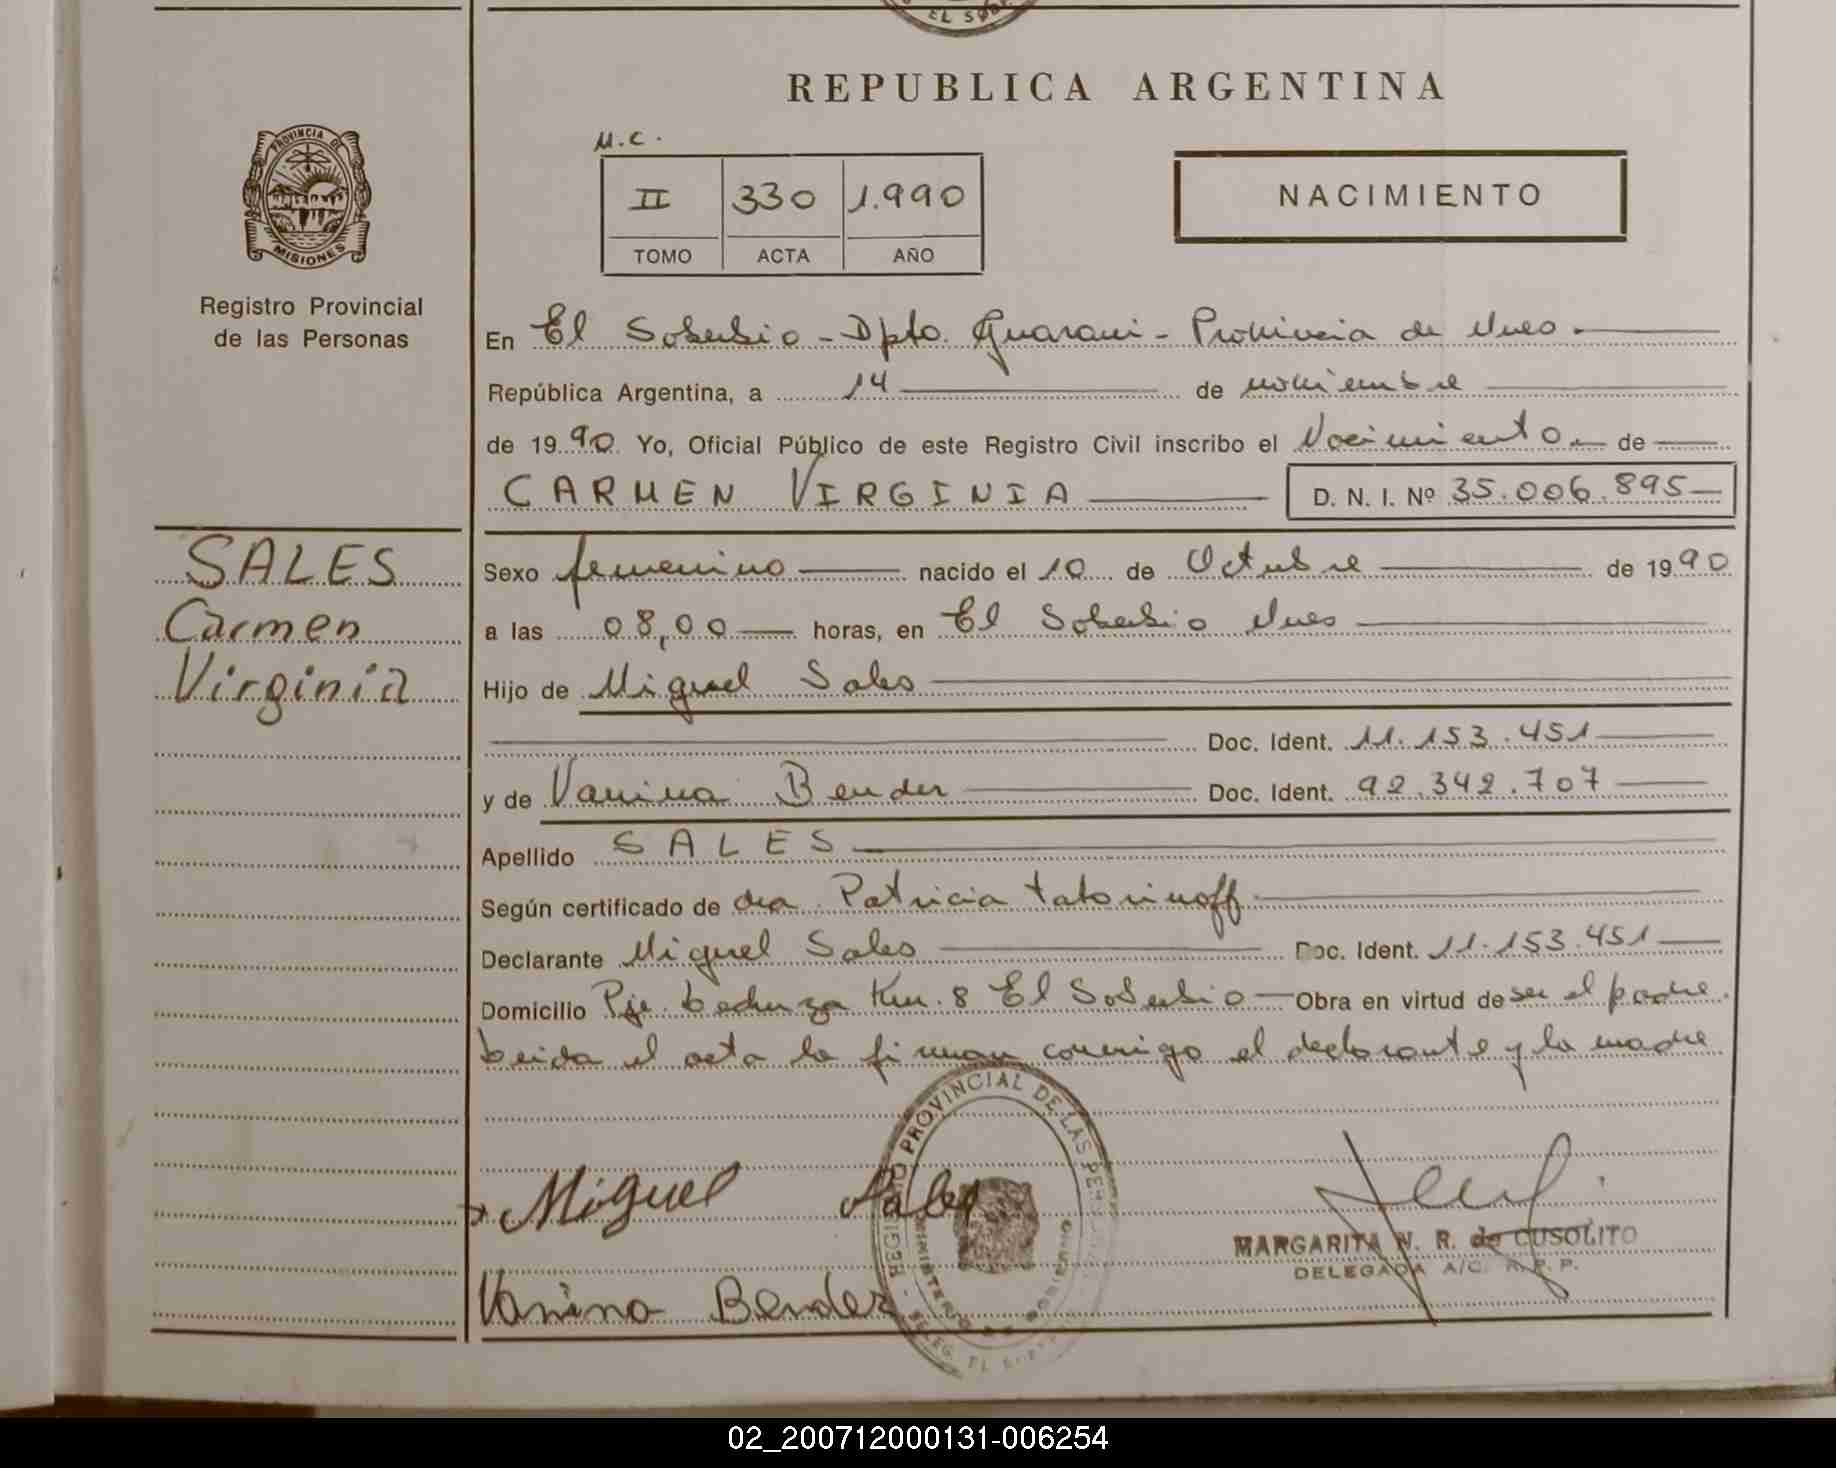 EL SOBE
REPUBLICA ARGENTINA
M.C.
II 330 1.990
TOMO ACTA AÑO
NACIMIENTO
PROVINCIA DE
MISIONES
Registro Provincial
de las Personas
En El Soberbio - Dpto. Guarani - Provincia de Mnes.
República Argentina, a 14 de noviembre
de 1990 Yo, Oficial Público de este Registro Civil inscribo el Nacimiento de
CARMEN VIRGINIA D. N. I. Nº 35.006.895
SALES
Carmen
Virginia
Sexo femenino nacido el 10 de Octubre de 1990
a las 08,00 horas, en El Soberbio Mnes
Hijo de Miguel Sales
Doc. Ident. 11.153.451
y de Vanina Bender Doc. Ident. 92.342.707
Apellido SALES
Según certificado de dra. Patricia
Declarante Miguel Sales Doc. Ident. 11.153.451
Domicilio Pje. Km. 8 El Soberbio Obra en virtud de ser el padre.
Leida el acta la firman conmigo el declarante y la madre
REGISTRO PROVINCIAL DE LAS PER
MINISTERIO DE GOBIERNO
DELEG. EL
Miguel Sales
MARGARITA N. R. de CUSOLITO
DELEGADA A/C. R. P. P.
Vanina Bender
02_200712000131-006254